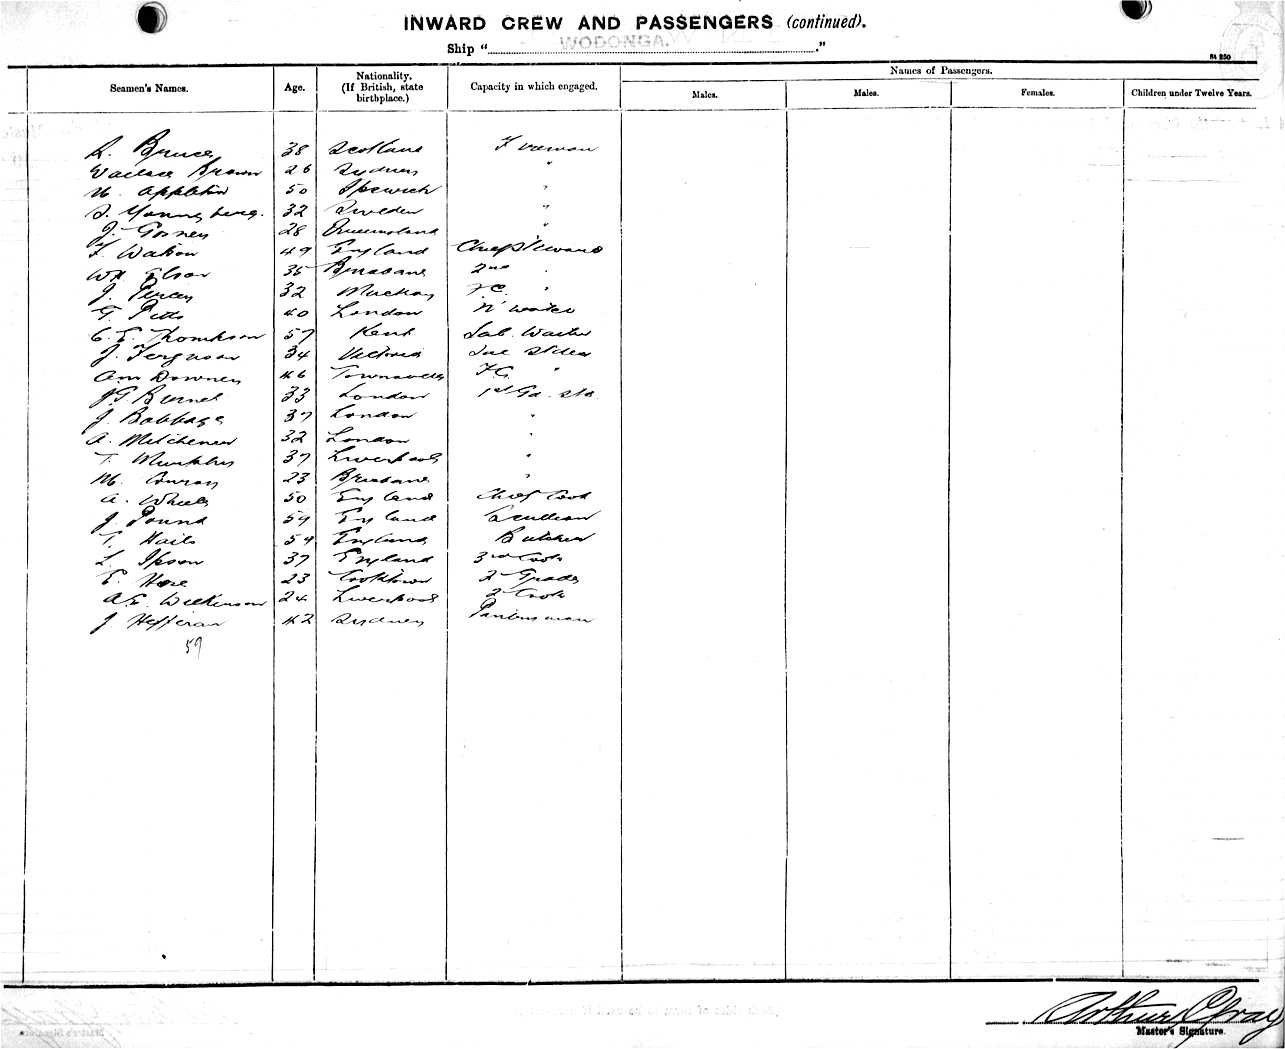 INWARD CREW AND PASSENGERS (continued).
Ship "WODONGA."
Seamen's Names. Age. Nationality. (If British, state birthplace.) Capacity in which engaged. Names of Passengers.
Males. Males. Females. Children under Twelve Years.
R. Bruce 38 Scotland Fireman
Wallace Brown 26 Sydney "
W. Appleton 50 Ipswich "
S. Youngberg. 32 Sweden "
J. Gosney 28 Queensland "
F. Watson 49 England Chief Steward
Wm Elsor 35 Brisbane 2nd "
J. Percy 32 Mackay F.C. "
G. Pitts 40 London N' Watch
C. E. Thompson 57 Kent Sal. Waiter
J. Ferguson 34 Victoria
Downey 46 Townsville F.C. "
J G. Burnet 33 London 1st Gd. Std
J. Babbage 37 London "
A. Mitchener 32 London "
T. Murphy 37 Liverpool "
M. Conroy 23 Brisbane "
A. Wheels 50 England Chief Cook
J. Pound 59 England Scullion
T. Hails 59 England Butcher
L. Ipson 37 England 3rd Cook
E. Hore 23 Cooktown 2 Grade
A E. Wilkinson 24 Liverpool 2 Cook
J Hefferan 42 Sydney Pantryman
59
Arthur Gray
Master's Signature.